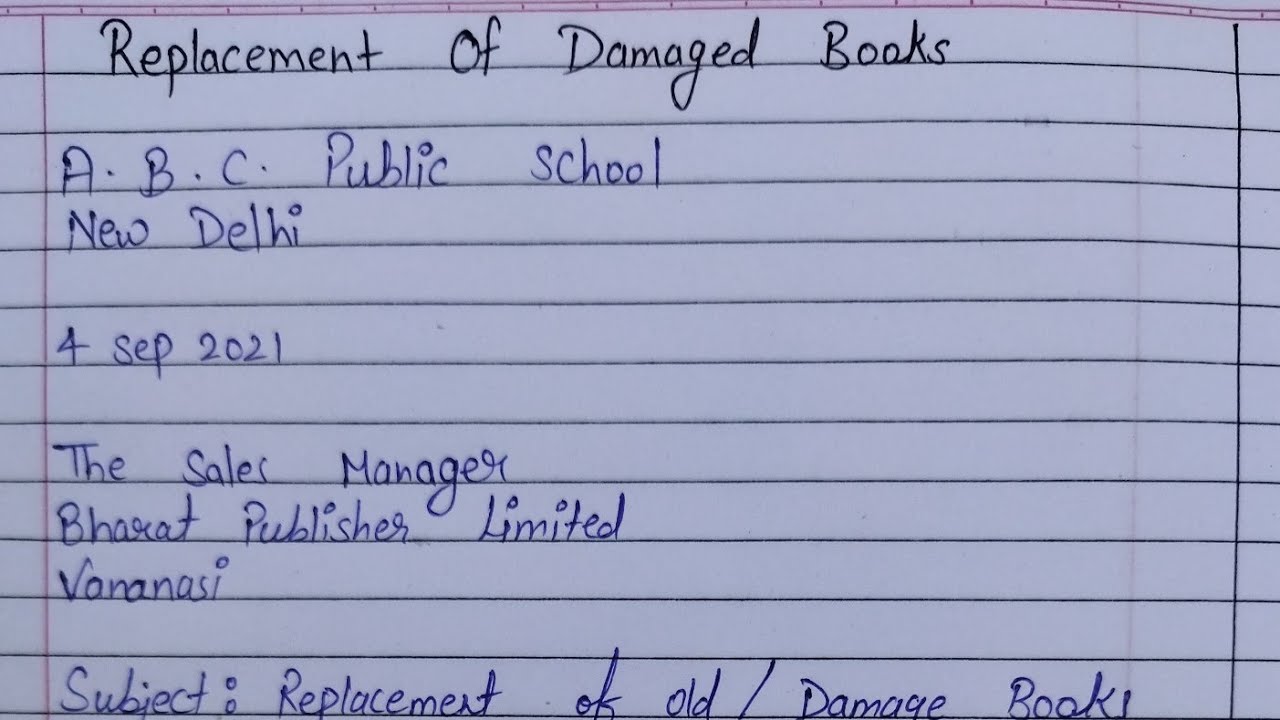 Replacement Of Damaged Books
A. B. C. Public School
New Delhi
4 Sep 2021
The Sales Manager
Bharat Publisher Limited
Vananasi
Subject: Replacement of old / Damage Books